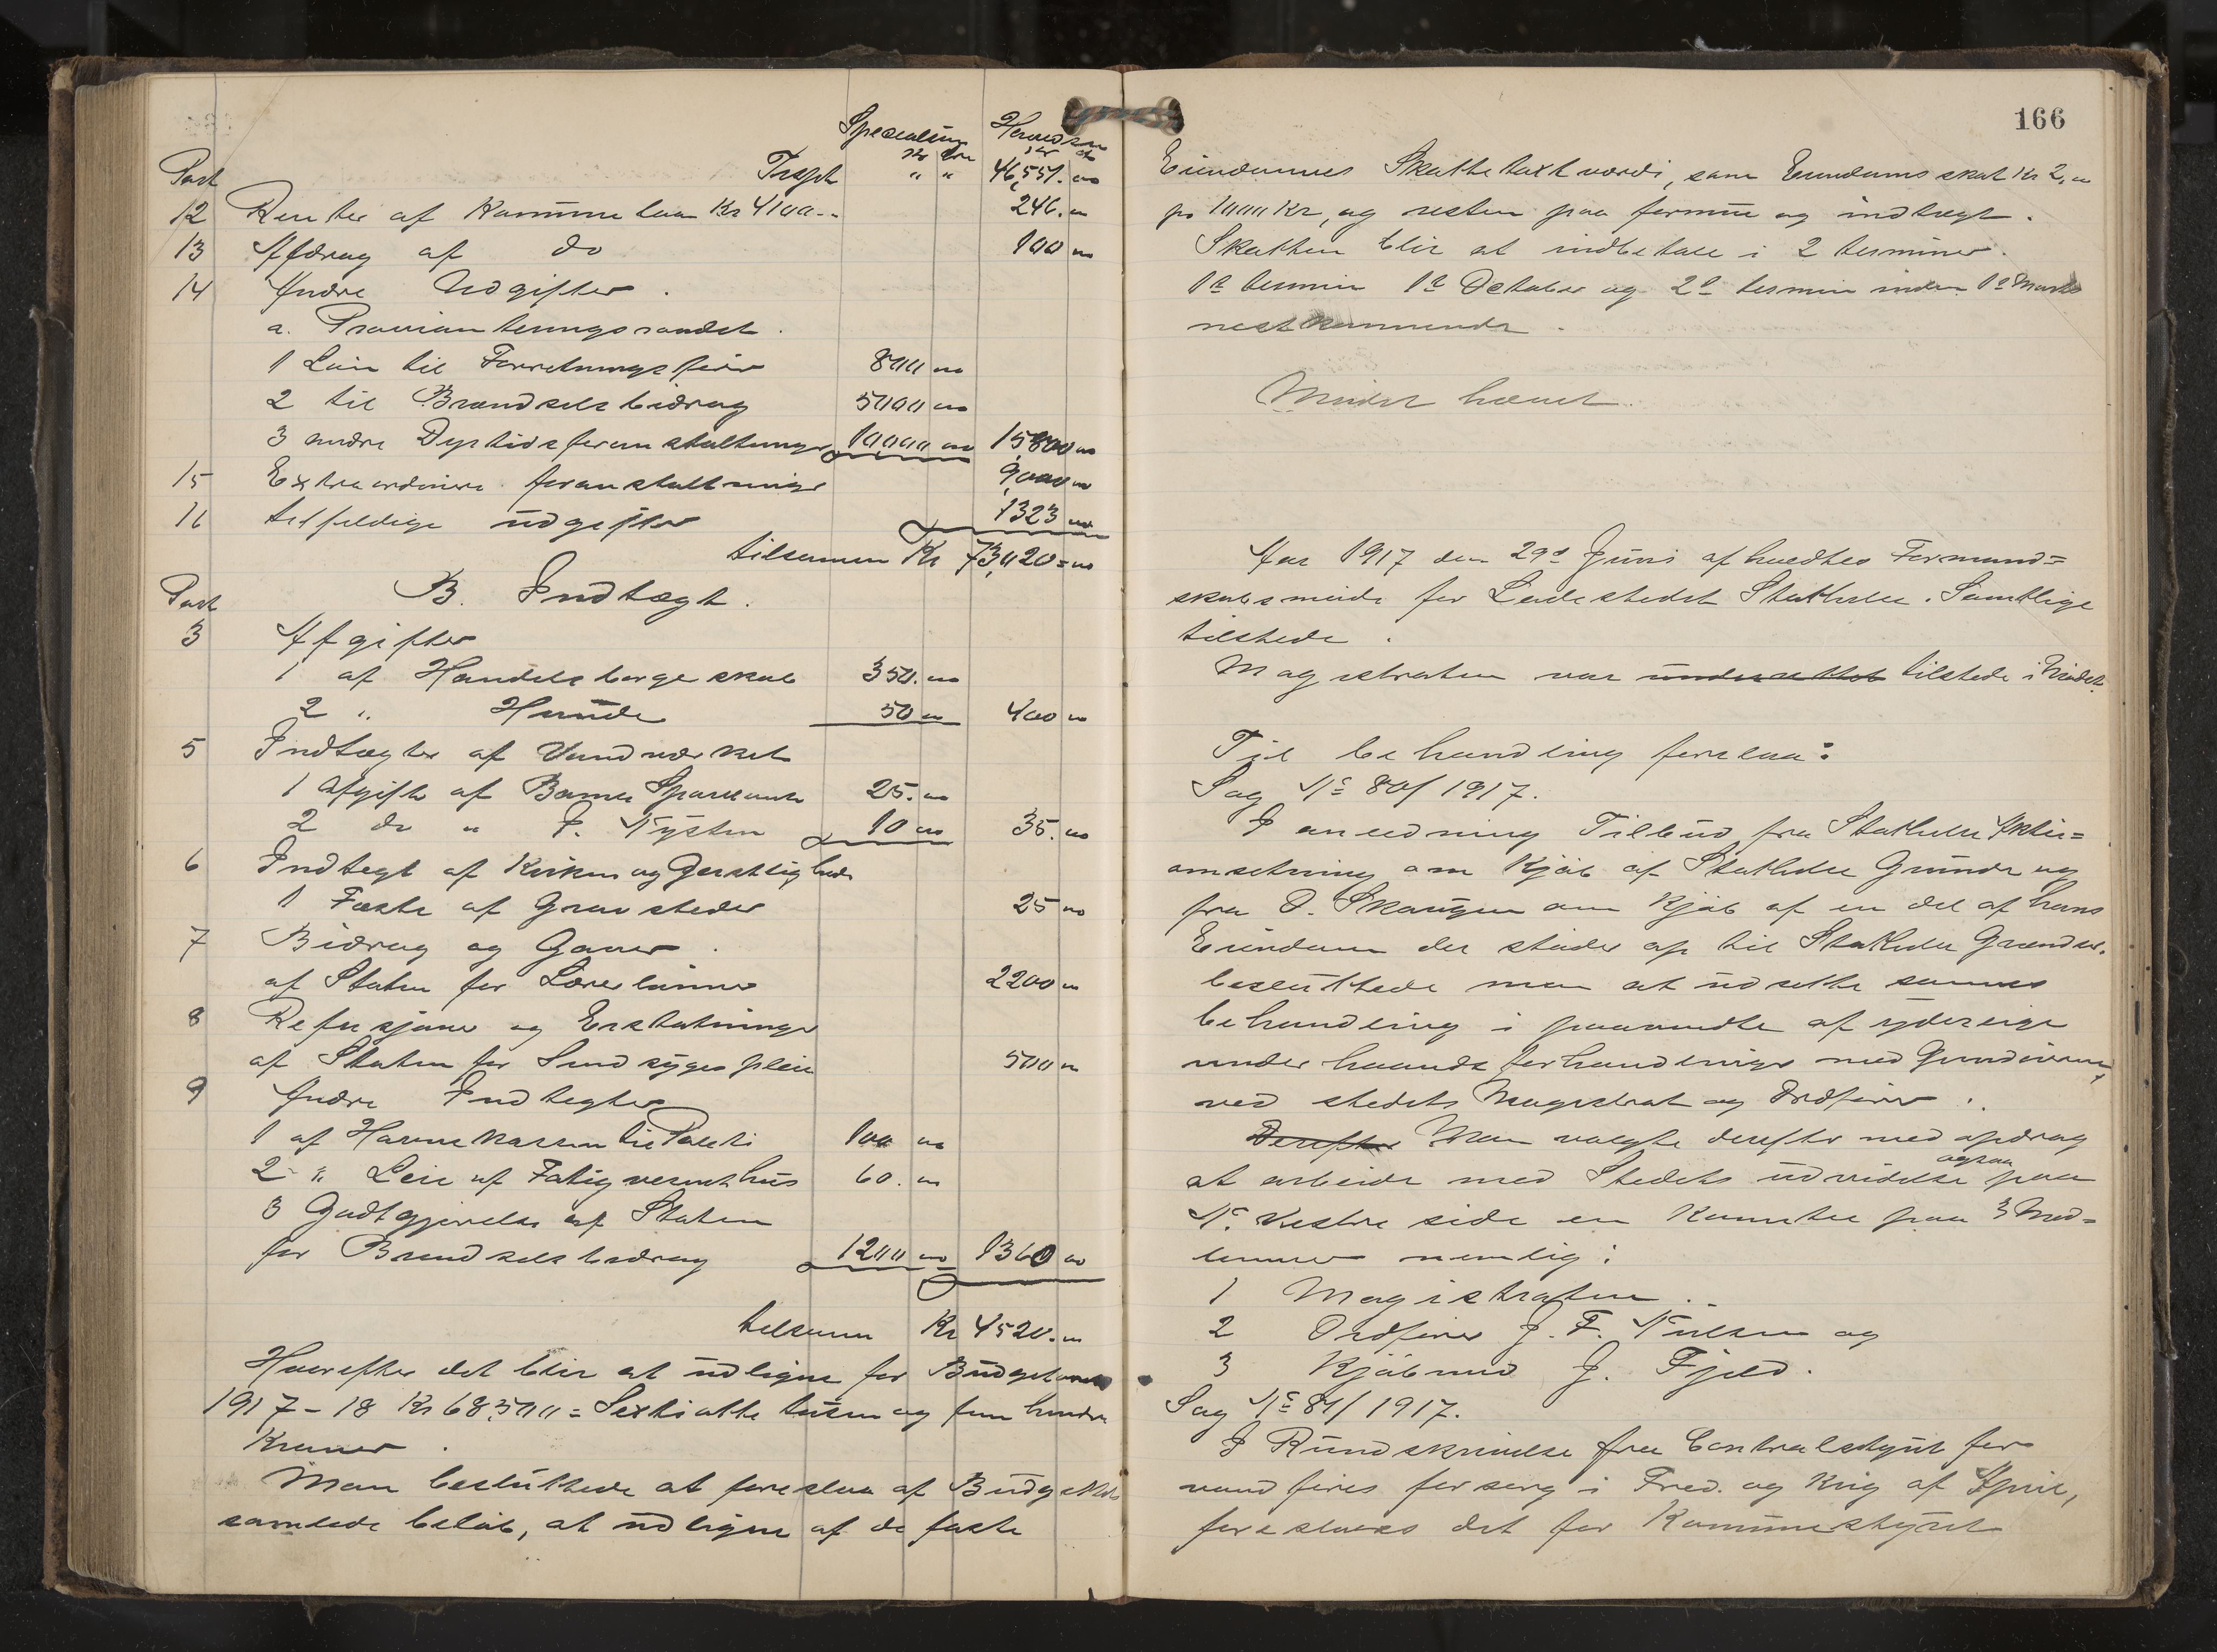 Specialsum Hovedsum
Kr Øre Kr Ø
Post Trspt " " 46,551.00
12 Renter af Kommunelaan Kr 4100.. 246.00
13 Afdrag af do 100 00
14 Andre Udgifter.
a. Provianteringsraadet.
1 Løn til Forretningsfører 800 00
2 til Brændselsbidrag 5000 00
3 andre Dyrtidsforanstaltninger 10,000 00 15,800 00
15 Extraordinære foranstaltninger 9,000 00
16 tilfeldige udgifter 1323 00
tilsammen Kr 73,020=00
Post B. Indtægt.
3 Afgifter
1 af Handelsborgerskab 350.00
2 " Hunde 50 00 400 00
5 Indtægter af Vandværket
1 Afgift af Sparebank 25.00
2 do " J. Nysten 10 00 35.00
6 Indtegt af Kirken og Geistlighed
1 Fæste af Gravsteder 25 00
7 Bidrag og Gaver.
af Staten for Lærerlønner 2200 00
8 Refusjoner og Erstatninger
af Staten for Sindsyges pleie 500 00
9 Andre Indtegter
1 af Havnekassen til Politi 100 00
2 " Leie af Fatigvesenets hus 60.00
3 Godtgjørelse af Staten
for Brendselsbidrag 1200 00 1360 00
tilsamm Kr 4520.00
Hvorefter det blir at udligne for Budgetaaret
1917-18 Kr 68,500 = Sextiotte tusen og fem hundre
Kroner.
Man besluttede at foreslaa af Budgettets
samlede beløb, at udligne af de faste
166
Eiendommes Skattetaxtværdi, som Eiendomsskat Kr 2,00
pr 1000 Kr, og resten paa formue og indtægt.
Skatten blir at indbetale i 2 terminer.
1ste termin 1ste October og 2den termin inden 1ste Marts
nestkommende.
Mødet hævet.
Aar 1917 den 29de Juni afholdtes Formand=
skabsmøde for Ladestedet Stathelle. Samtlige
tilstede.
Magistraten var underrettet tilstede i Mødet.
Til behandling forelaa:
Sag No 80/1917.
I anledning Tilbud fra Stathelle Aktie=
omsetning om Kjøb af Stathelle Grunde og
fra O. Skougen om Kjøb af en del af hans
Eiendom der støder op til Stathelle Grændser.
besluttede man at udsette sammes
behandling i paavente af yderlige
underhaands forhandlinger med Grundeieren,
ved stedets Magistrat og Ordfører.
Derefter Man valgte derefter med opdrag
at arbeide med Stedets udvidelse ogsaa paa
N. Vestre side en Komite paa 3 Med=
lemmer nemlig:
1 Magistraten.
2 Ordfører J. F. Nielsen og
3 Kjøbmd J. Fjeld.
Sag No 81/1917.
I Rundskrivelse fra Centralstyret for
vanføres forsorg i Fred og Krig af April,
foreslaaes det for Kommunestyret